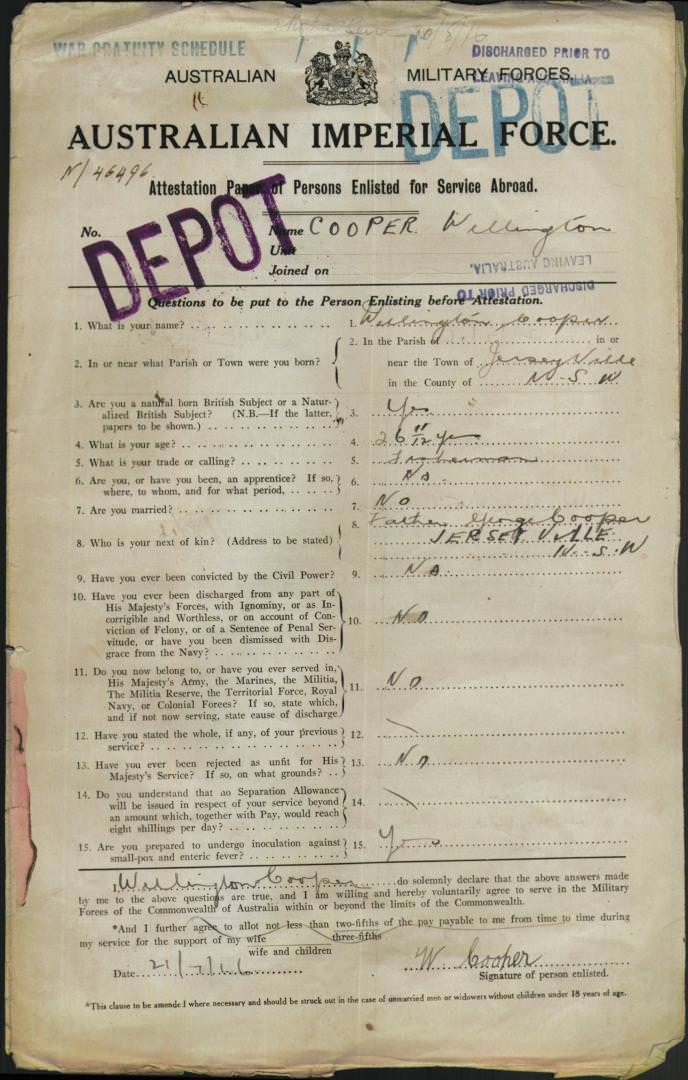 WAR GRATUITY SCHEDULE
10/8/16
DISCHARGED PRIOR TO
LEAVING AUSTRALIA.
AUSTRALIAN MILITARY FORCES.
DEPOT
AUSTRALIAN IMPERIAL FORCE.
N/46496
Attestation Paper of Persons Enlisted for Service Abroad.
DEPOT
No. Name COOPER Wellington
Unit
Joined on
DISCHARGED PRIOR TO
LEAVING AUSTRALIA.
Questions to be put to the Person Enlisting before Attestation.
1. What is your name? Wellington Cooper
2. In or near what Parish or Town were you born? 2. In the Parish of in or
near the Town of Jersey Ville
in the County of N-S W
3. Are you a natural born British Subject or a Natur-
alized British Subject? (N.B.—If the latter,
papers to be shown.) 3. Yes
4. What is your age? 4. 26 11/12 yrs
5. What is your trade or calling? 5. Fisherman
6. Are you, or have you been, an apprentice? If so,
where, to whom, and for what period, 6. No
7. Are you married? 7. NO
8. Who is your next of kin? (Address to be stated) 8. Father George Cooper
JERSEY VILLE
N-S.W
9. Have you ever been convicted by the Civil Power? 9. No
10. Have you ever been discharged from any part of
His Majesty's Forces, with Ignominy, or as In-
corrigible and Worthless, or on account of Con-
viction of Felony, or of a Sentence of Penal Ser-
vitude, or have you been dismissed with Dis-
grace from the Navy? 10. NO
11. Do you now belong to, or have you ever served in,
His Majesty's Army, the Marines, the Militia,
The Militia Reserve, the Territorial Force, Royal
Navy, or Colonial Forces? If so, state which,
and if not now serving, state cause of discharge 11. NO
12. Have you stated the whole, if any, of your previous
service? 12. \
13. Have you ever been rejected as unfit for His
Majesty's Service? If so, on what grounds? 13. NO
14. Do you understand that no Separation Allowance
will be issued in respect of your service beyond
an amount which, together with Pay, would reach
eight shillings per day? 14. \
15. Are you prepared to undergo inoculation against
small-pox and enteric fever? 15. Yes
I, Wellington Cooper do solemnly declare that the above answers made
by me to the above questions are true, and I am willing and hereby voluntarily agree to serve in the Military
Forces of the Commonwealth of Australia within or beyond the limits of the Commonwealth.
*And I further agree to allot not less than two-fifths of the pay payable to me from time to time during
three-fifths
my service for the support of my wife
wife and children
Date 21/7/16 W Cooper
Signature of person enlisted.
*This clause to be amended where necessary and should be struck out in the case of unmarried men or widowers without children under 18 years of age.